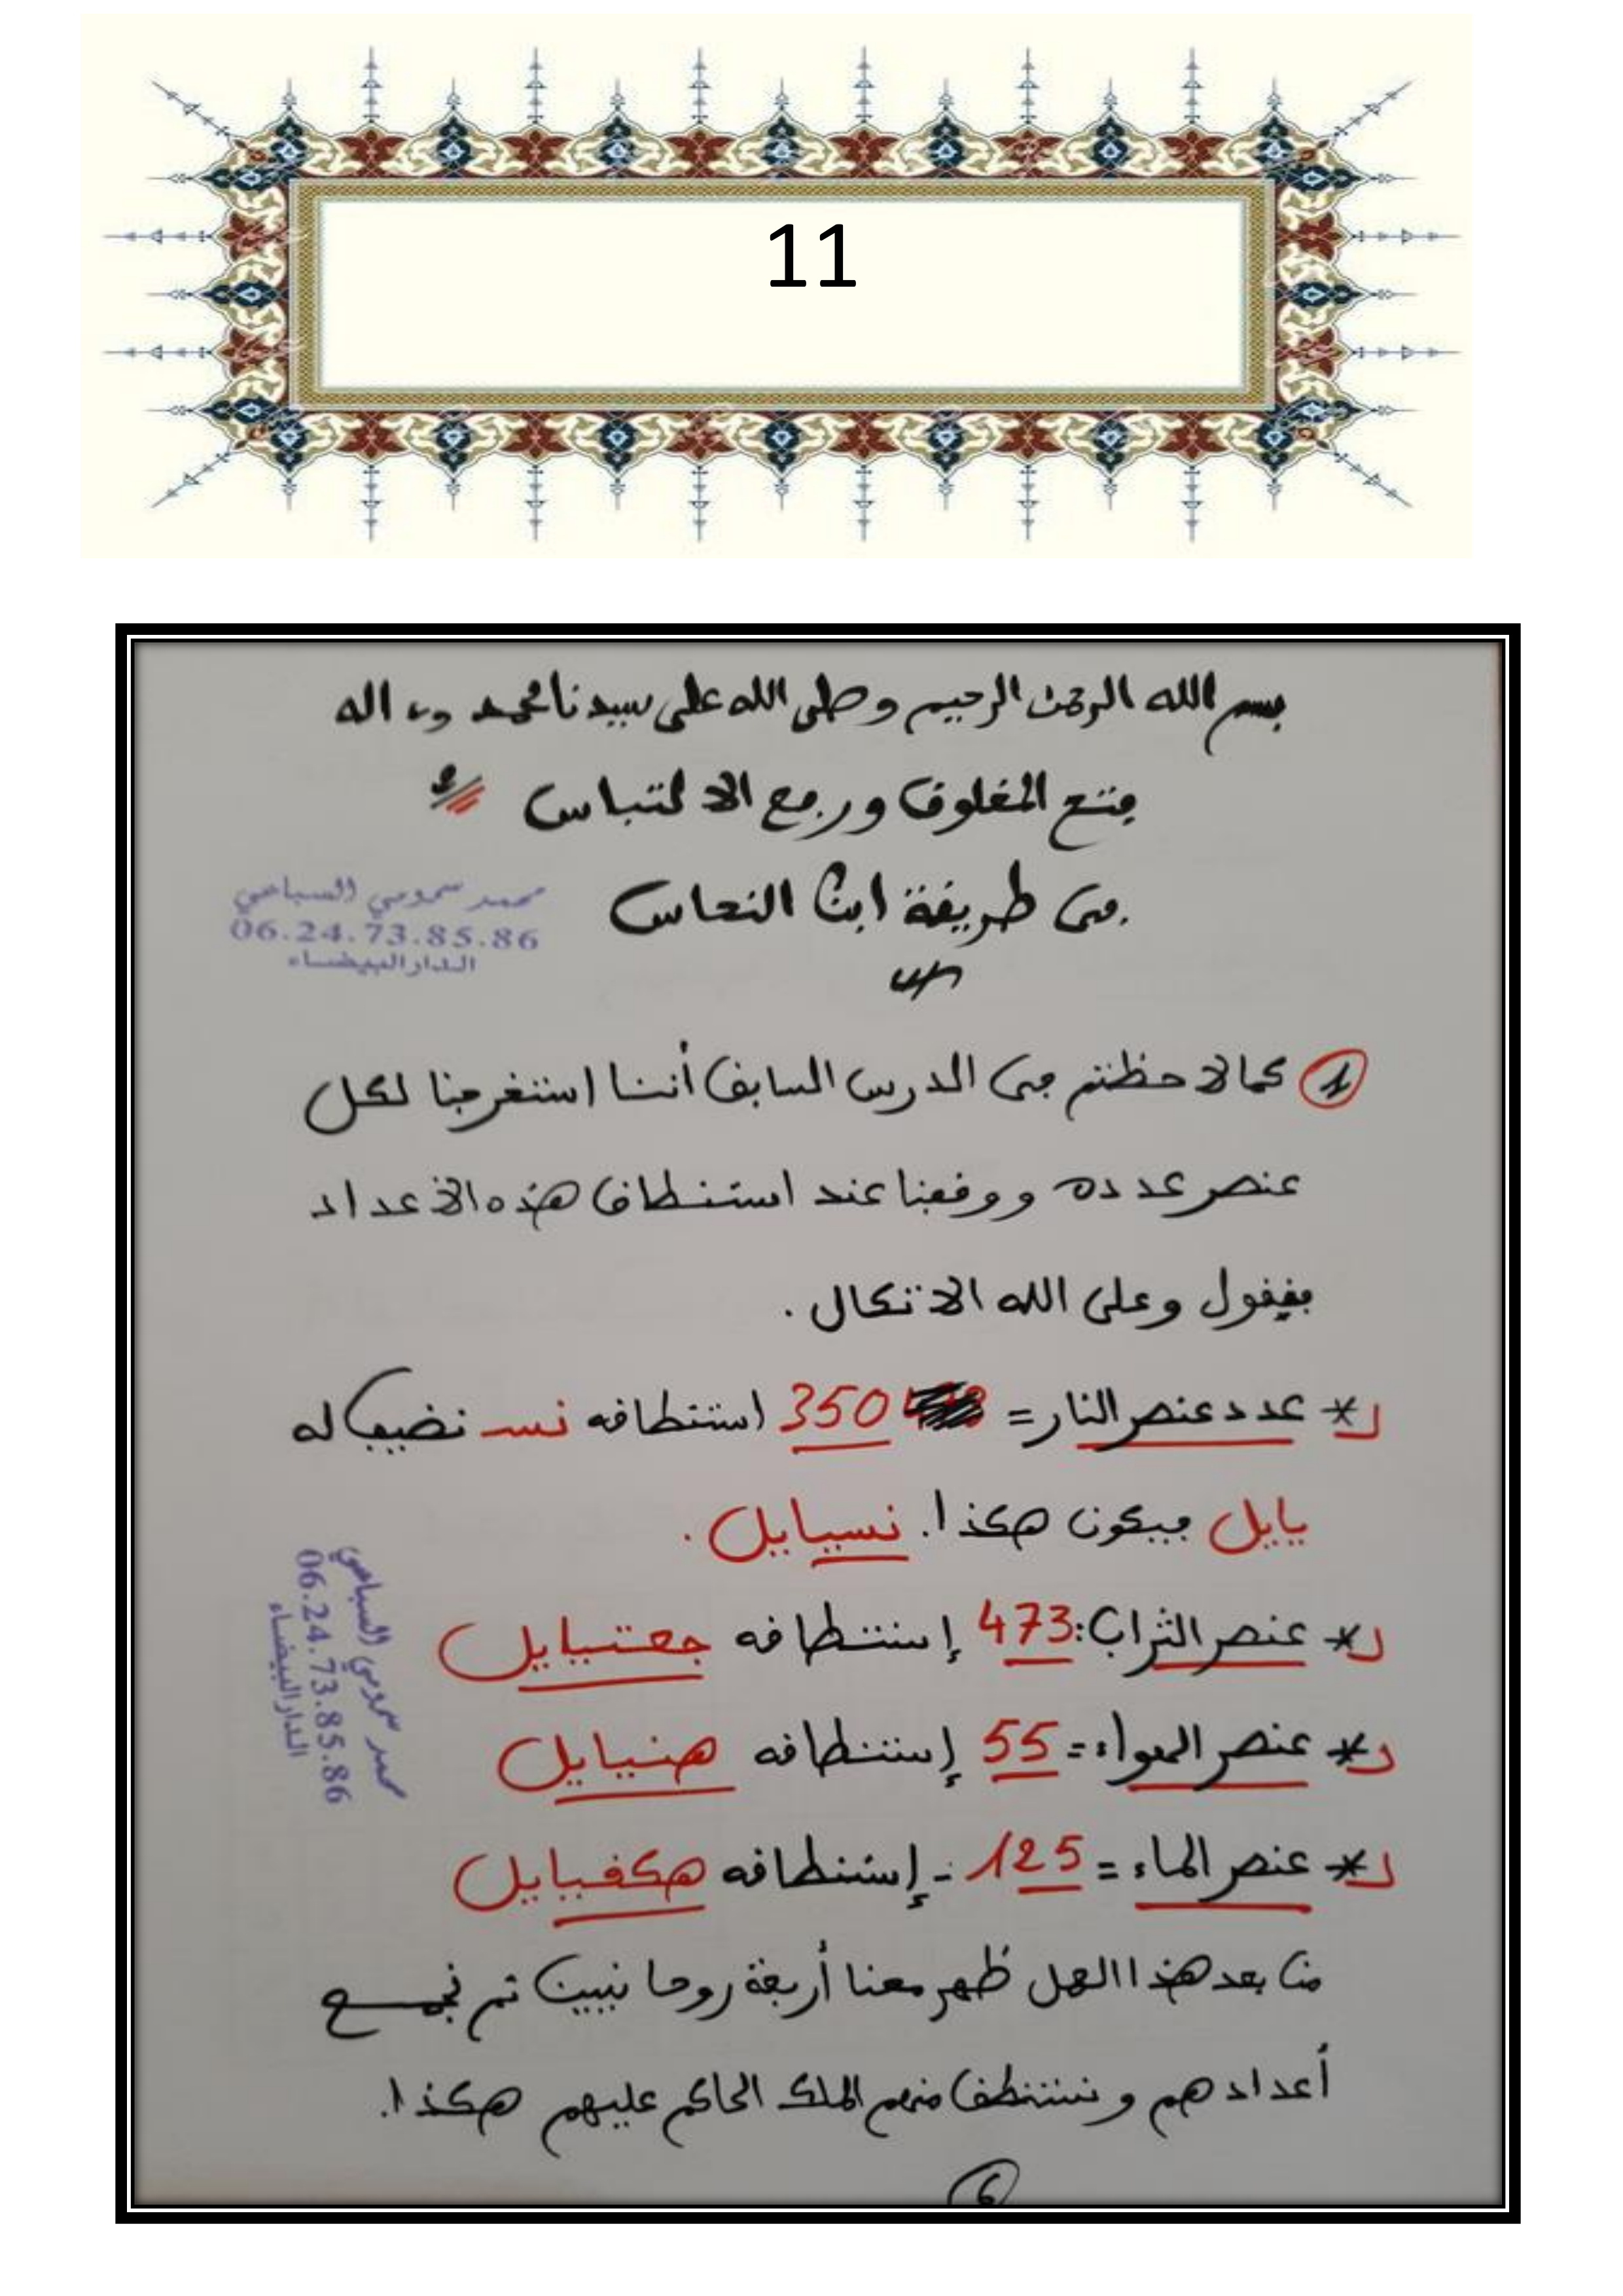 11
بسم الله الرحمن الرحيم وصلى الله على سيدنا محمد وءاله
فتح المغلوق ورفع الالتباس
في طريقة ابن النحاس
محمد سمومي السباعي
06.24.73.85.86
الدار البيضاء
1 كما لاحظتم في الدرس السابق أننا استخرجنا لكل
عنصر عدده ووقفنا عند استنطاق هذه الأعداد
فيقول وعلى الله الاتكال .
* عدد عنصر النار = 350 استنطاقه نسـ نضيف له
يايل فيكون هكذا. نسيايل .
* عنصر التراب: 473 إستنطاقه جعتيايل
* عنصر الهواء = 55 إستنطاقه هنيايل
* عنصر الماء = 125 - إستنطاقه هكفيايل
محمد سمومي السباعي
06.24.73.85.86
الدار البيضاء
من بعد هذا العمل ظهر معنا أربعة روحانيين تم نجمع
أعدادهم ونستنطق منهم الملك الحاكم عليهم هكذا.